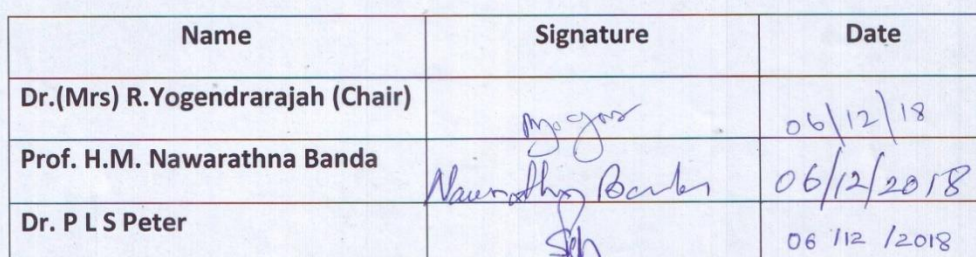 Name Signature Date
Dr.(Mrs) R.Yogendrarajah (Chair) 06/12/18
Prof. H.M. Nawarathna Banda Nawarathna Banda 06/12/2018
Dr. P L S Peter 06/12/2018